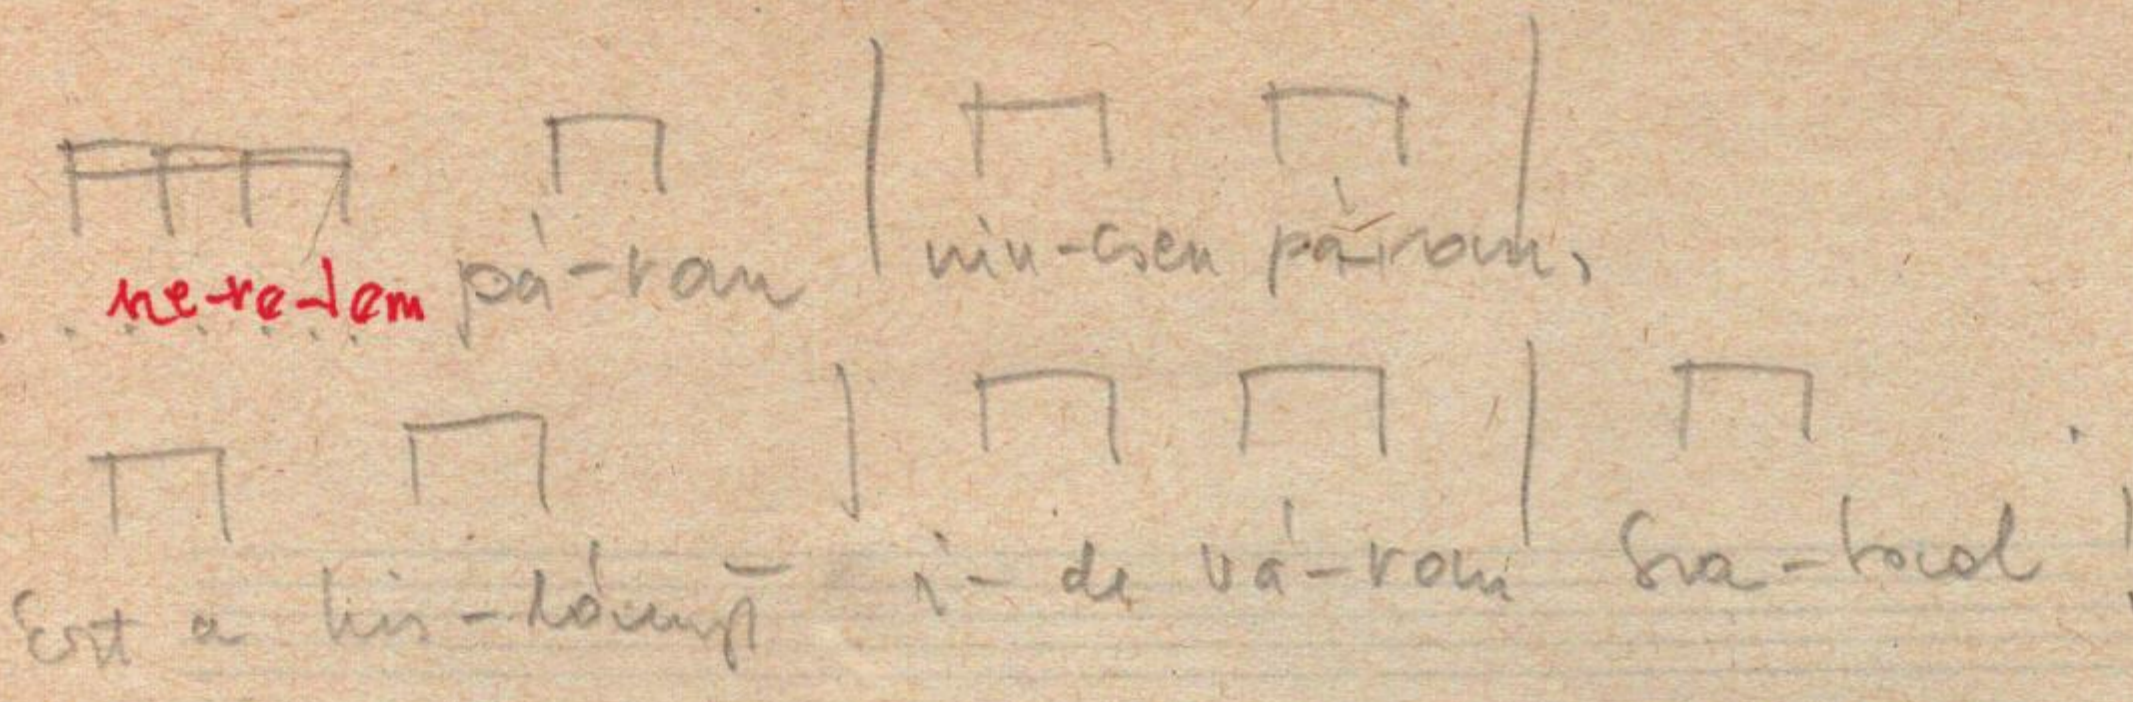 pá-rom nin-csen párom,
Ezt a kis-lányt i-de vá-rom Sza-bad